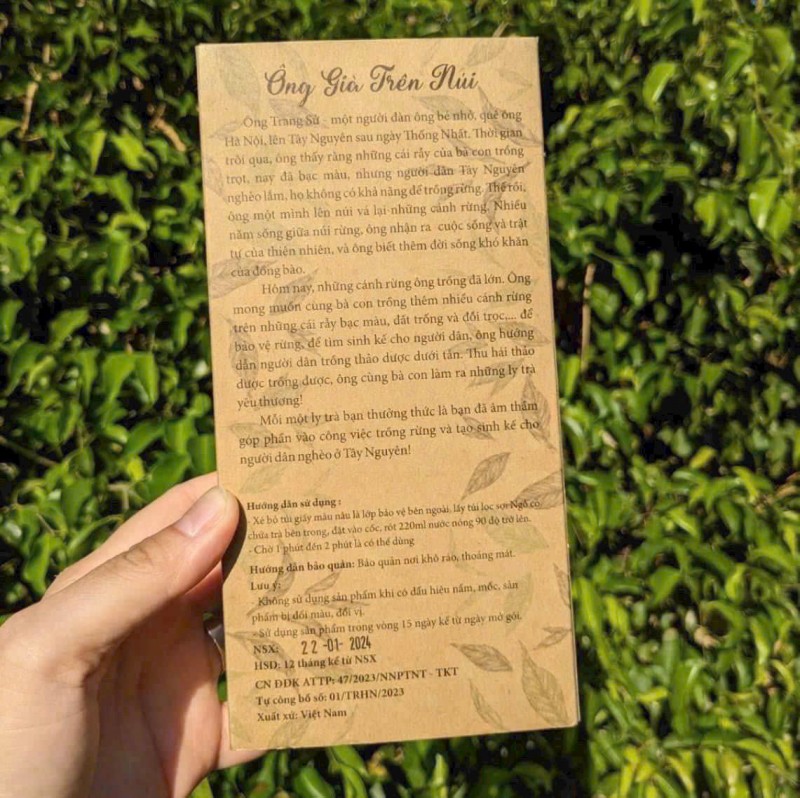 Ông Già Trên Núi
Ông Trang Sừ - một người đàn ông bé nhỏ, quê ông
Hà Nội, lên Tây Nguyên sau ngày Thống Nhất. Thời gian
trôi qua, ông thấy rằng những cái rẫy của bà con trồng
trọt, nay đã bạc màu, nhưng người dân Tây Nguyên
nghèo lắm, họ không có khả năng để trồng rừng. Thế rồi,
ông một mình lên núi vá lại những cánh rừng. Nhiều
năm sống giữa núi rừng, ông nhận ra cuộc sống và trật
tự của thiên nhiên, và ông biết thêm đời sống khó khăn
của đồng bào.
Hôm nay, những cánh rừng ông trồng đã lớn. Ông
mong muốn cùng bà con trồng thêm nhiều cánh rừng
trên những cái rẫy bạc màu, đất trống và đồi trọc,... để
bảo vệ rừng, để tìm sinh kế cho người dân, ông hướng
dẫn người dân trồng thảo dược dưới tán. Thu hái thảo
dược trồng được, ông cùng bà con làm ra những ly trà
yêu thương!
Mỗi một ly trà bạn thưởng thức là bạn đã âm thầm
góp phần vào công việc trồng rừng và tạo sinh kế cho
người dân nghèo ở Tây Nguyên!
Hướng dẫn sử dụng :
- Xé bỏ túi giấy màu nâu là lớp bảo vệ bên ngoài, lấy túi lọc sợi Ngô có
chứa trà bên trong, đặt vào cốc, rót 220ml nước nóng 90 độ trở lên.
- Chờ 1 phút đến 2 phút là có thể dùng
Hướng dẫn bảo quản: Bảo quản nơi khô ráo, thoáng mát.
Lưu ý:
- Không sử dụng sản phẩm khi có dấu hiệu nấm, mốc, sản
phẩm bị đổi màu, đổi vị.
- Sử dụng sản phẩm trong vòng 15 ngày kể từ ngày mở gói.
NSX: 22-01-2024
HSD: 12 tháng kể từ NSX
CN ĐDK ATTP: 47/2023/NNPTNT - TKT
Tự công bố số: 01/TRHN/2023
Xuất xứ: Việt Nam